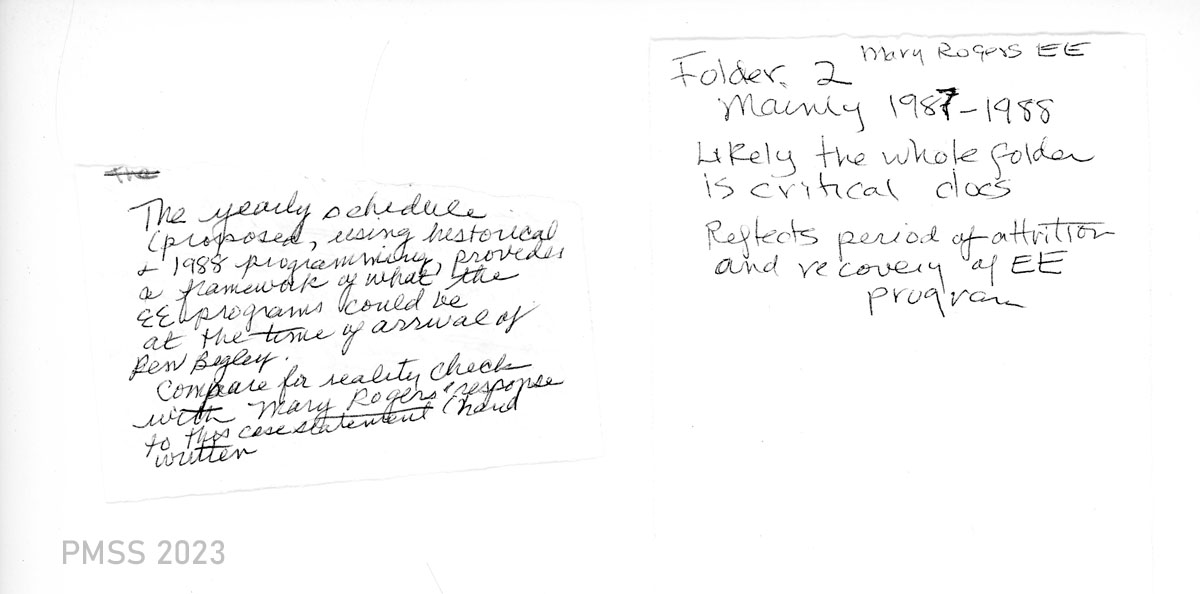 The
The yearly schedule
(proposed, using historical
& 1988 programming, provides
a framework of what the
EE programs could be
at the time of arrival of
Ben Begley.
Compare for reality check
with Mary Rogers' response
to this case statement (hand
written
Mary Rogers EE
Folder. 2
Mainly 1987-1988
Likely the whole folder
is critical docs
Reflects period of attrition
and recovery of EE
program
PMSS 2023